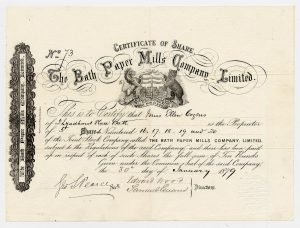 CERTIFICATE OF SHARE
No 73
The Bath Paper Mills Company Limited.
This is to Certify that
is the Proprietor
of 5 Shares Numbered 16. 17. 18. 19 and 20
of the Joint Stock Company called THE BATH PAPER MILLS COMPANY, LIMITED,
subject to the Regulations of the said Company, and that there has been paid
up in respect of each of such Shares the full sum of Ten Pounds
Given under the Common Seal of the said Company
the 30th day of January 1879
Edward Wood
Directors.